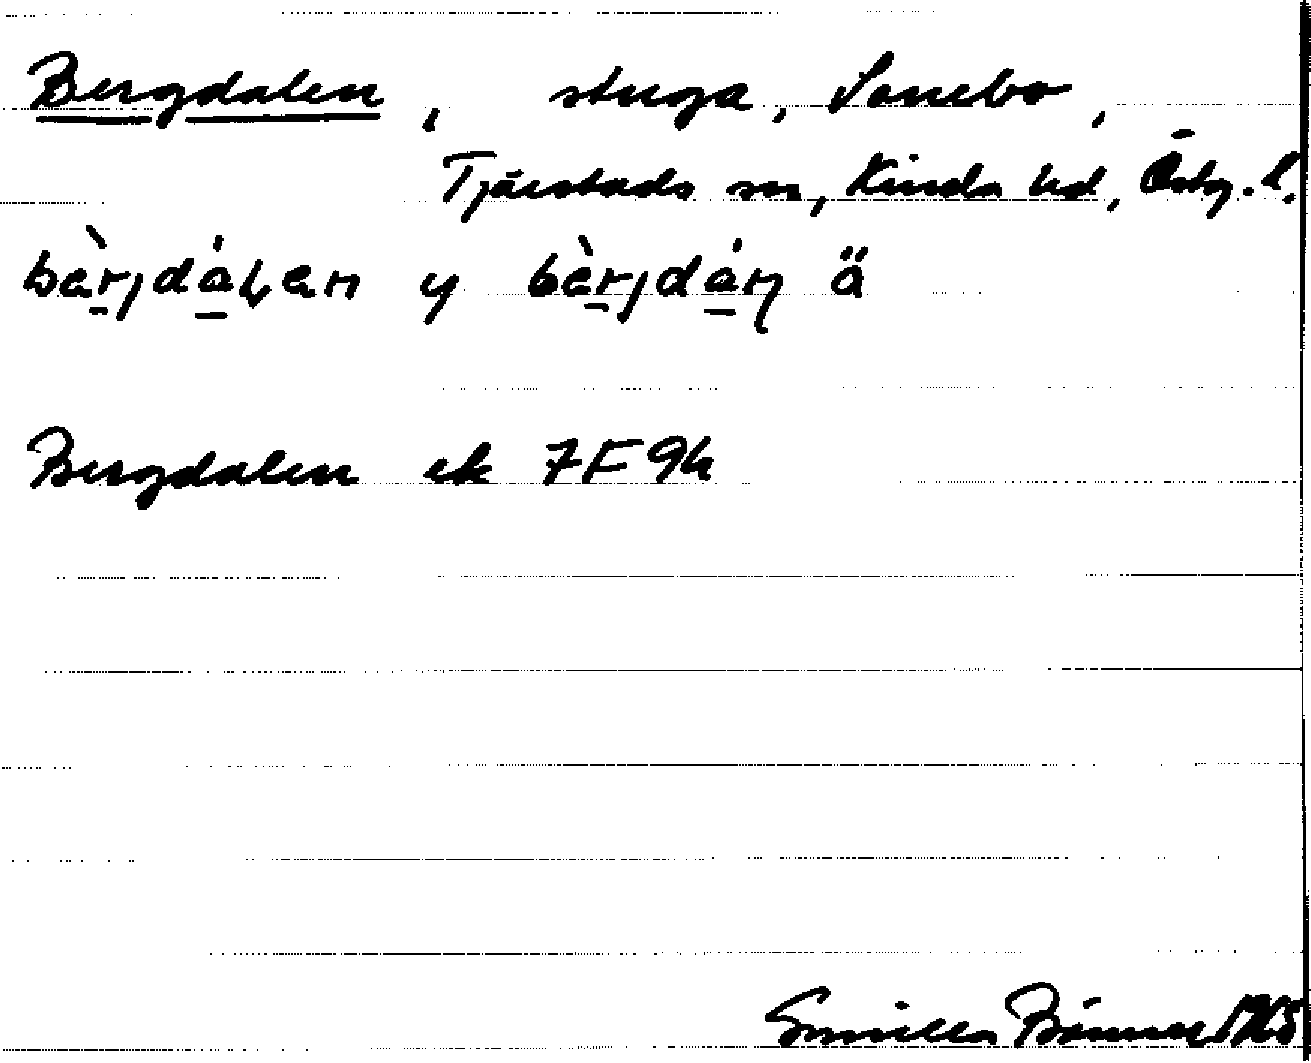 Bergdalen, stuga, Sonebo,
Tjärstads sn, Kinda hd, Östg. l.
bèrjdálen y bèrjdáŋ ä
Bergdalen ek 7F9h
Gunilla 1965